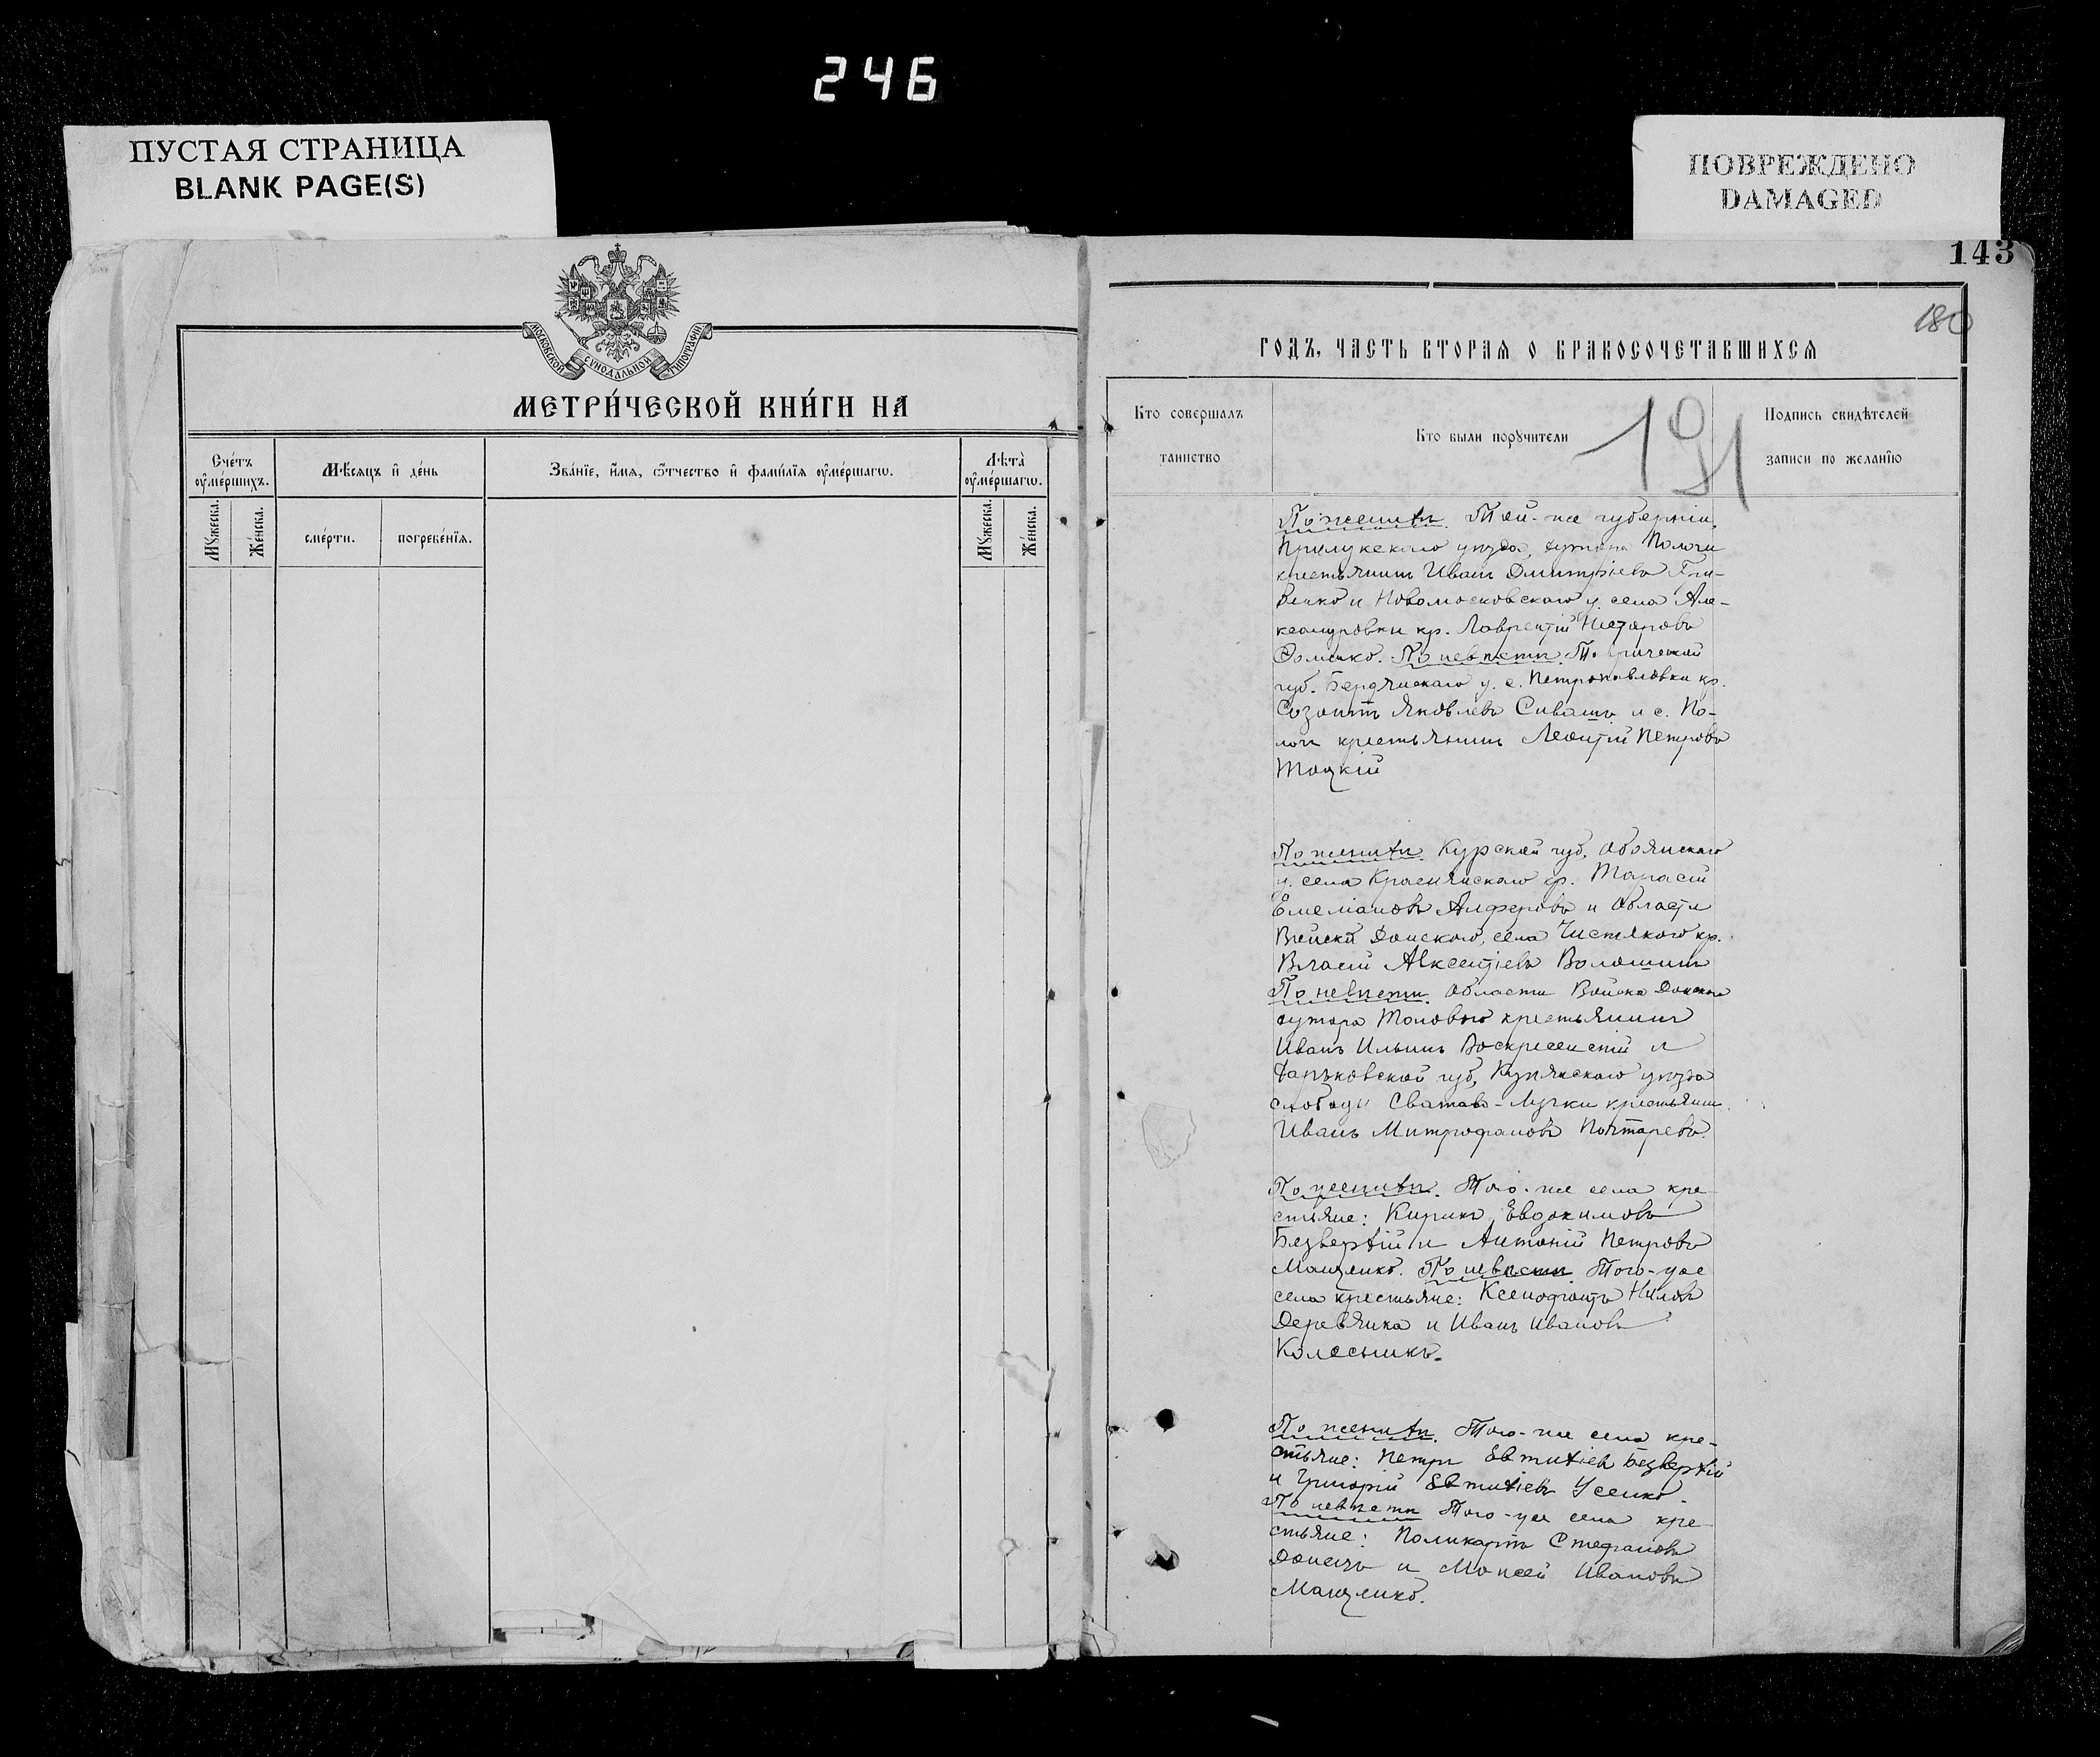 246
ПУСТАЯ СТРАНИЦА
BLANK PAGE(S)
ПОВРЕЖДЕНО
DAMAGED
МОСКОВСКОЙ СѴНОДАЛЬНОЙ ТИПОГРАФІИ
МЕТРИ́ЧЕСКОЙ КНИ́ГИ НА
Сче́тъ оу҆ме́ршихъ.
Мѣ́сяцъ и҆ де́нь
Зва́нїе, и҆́мя, ѻ҆́тчество и҆ фами́лїя оу҆ме́ршагѡ.
Лѣта̀ оу҆ме́ршагѡ.
Мꙋ́жеска.
Же́нска.
сме́рти.
погребе́нїя.
Мꙋ́жеска.
Же́нска.
143
180
ГОДЪ, ЧАСТЬ ВТОРАЯ О БРАКОСОЧЕТАВШИХСЯ
Кто совершалъ
таинство
Кто были порꙋчители
191
Подпись свидѣтелей
записи по желанїю
По женихѣ. Той-же губерніи,
Прилукскаго уѣзда, хутора Пологи
крестьянинъ Иванъ Дмитріевъ Гри-
венко и Новомосковскаго у. села Але-
ксандровки кр. Лаврентій Несторовъ
Фоменко. По невѣстѣ. Таврической
губ. Бердянскаго у. с. Петропавловки кр.
Созонтъ Яковлевъ Сивашъ и с. По-
логи крестьянинъ Леонтій Петровъ
Тоцкій
По женихѣ. Курской губ. Обоянскаго
у. села Краснянскаго кр. Тарасій
Емеліановъ Алферовъ и Области
Войска Донского, села Чистякого кр.
Власій Авксентіевъ Волошинъ
По невѣстѣ. Области Войска Донского
хутора Толового крестьянинъ
Иванъ Ильинъ Воскресенскій и
Харьковской губ. Купянскаго уѣзда
слободы Сватово-Лучки крестьянин.
Иванъ Митрофановъ Почтаревъ.
По женихѣ. Того-же села кре-
стьяне: Кирикъ Евдокимовъ
Безверхій и Антоній Петровъ
Мащенко. По невѣстѣ. Того-же
села крестьяне: Ксенофонтъ Ниловъ
Деревянка и Иванъ Ивановъ
Колесникъ.
По женихѣ. Того-же села кре-
стьяне: Петръ Евтихіевъ Безверхій
и Григорій Евтихіевъ Усенко.
По невѣстѣ Того-же села кре-
стьяне: Поликарпъ Стефановъ
Донецъ и Моисей Ивановъ
Мащенко.